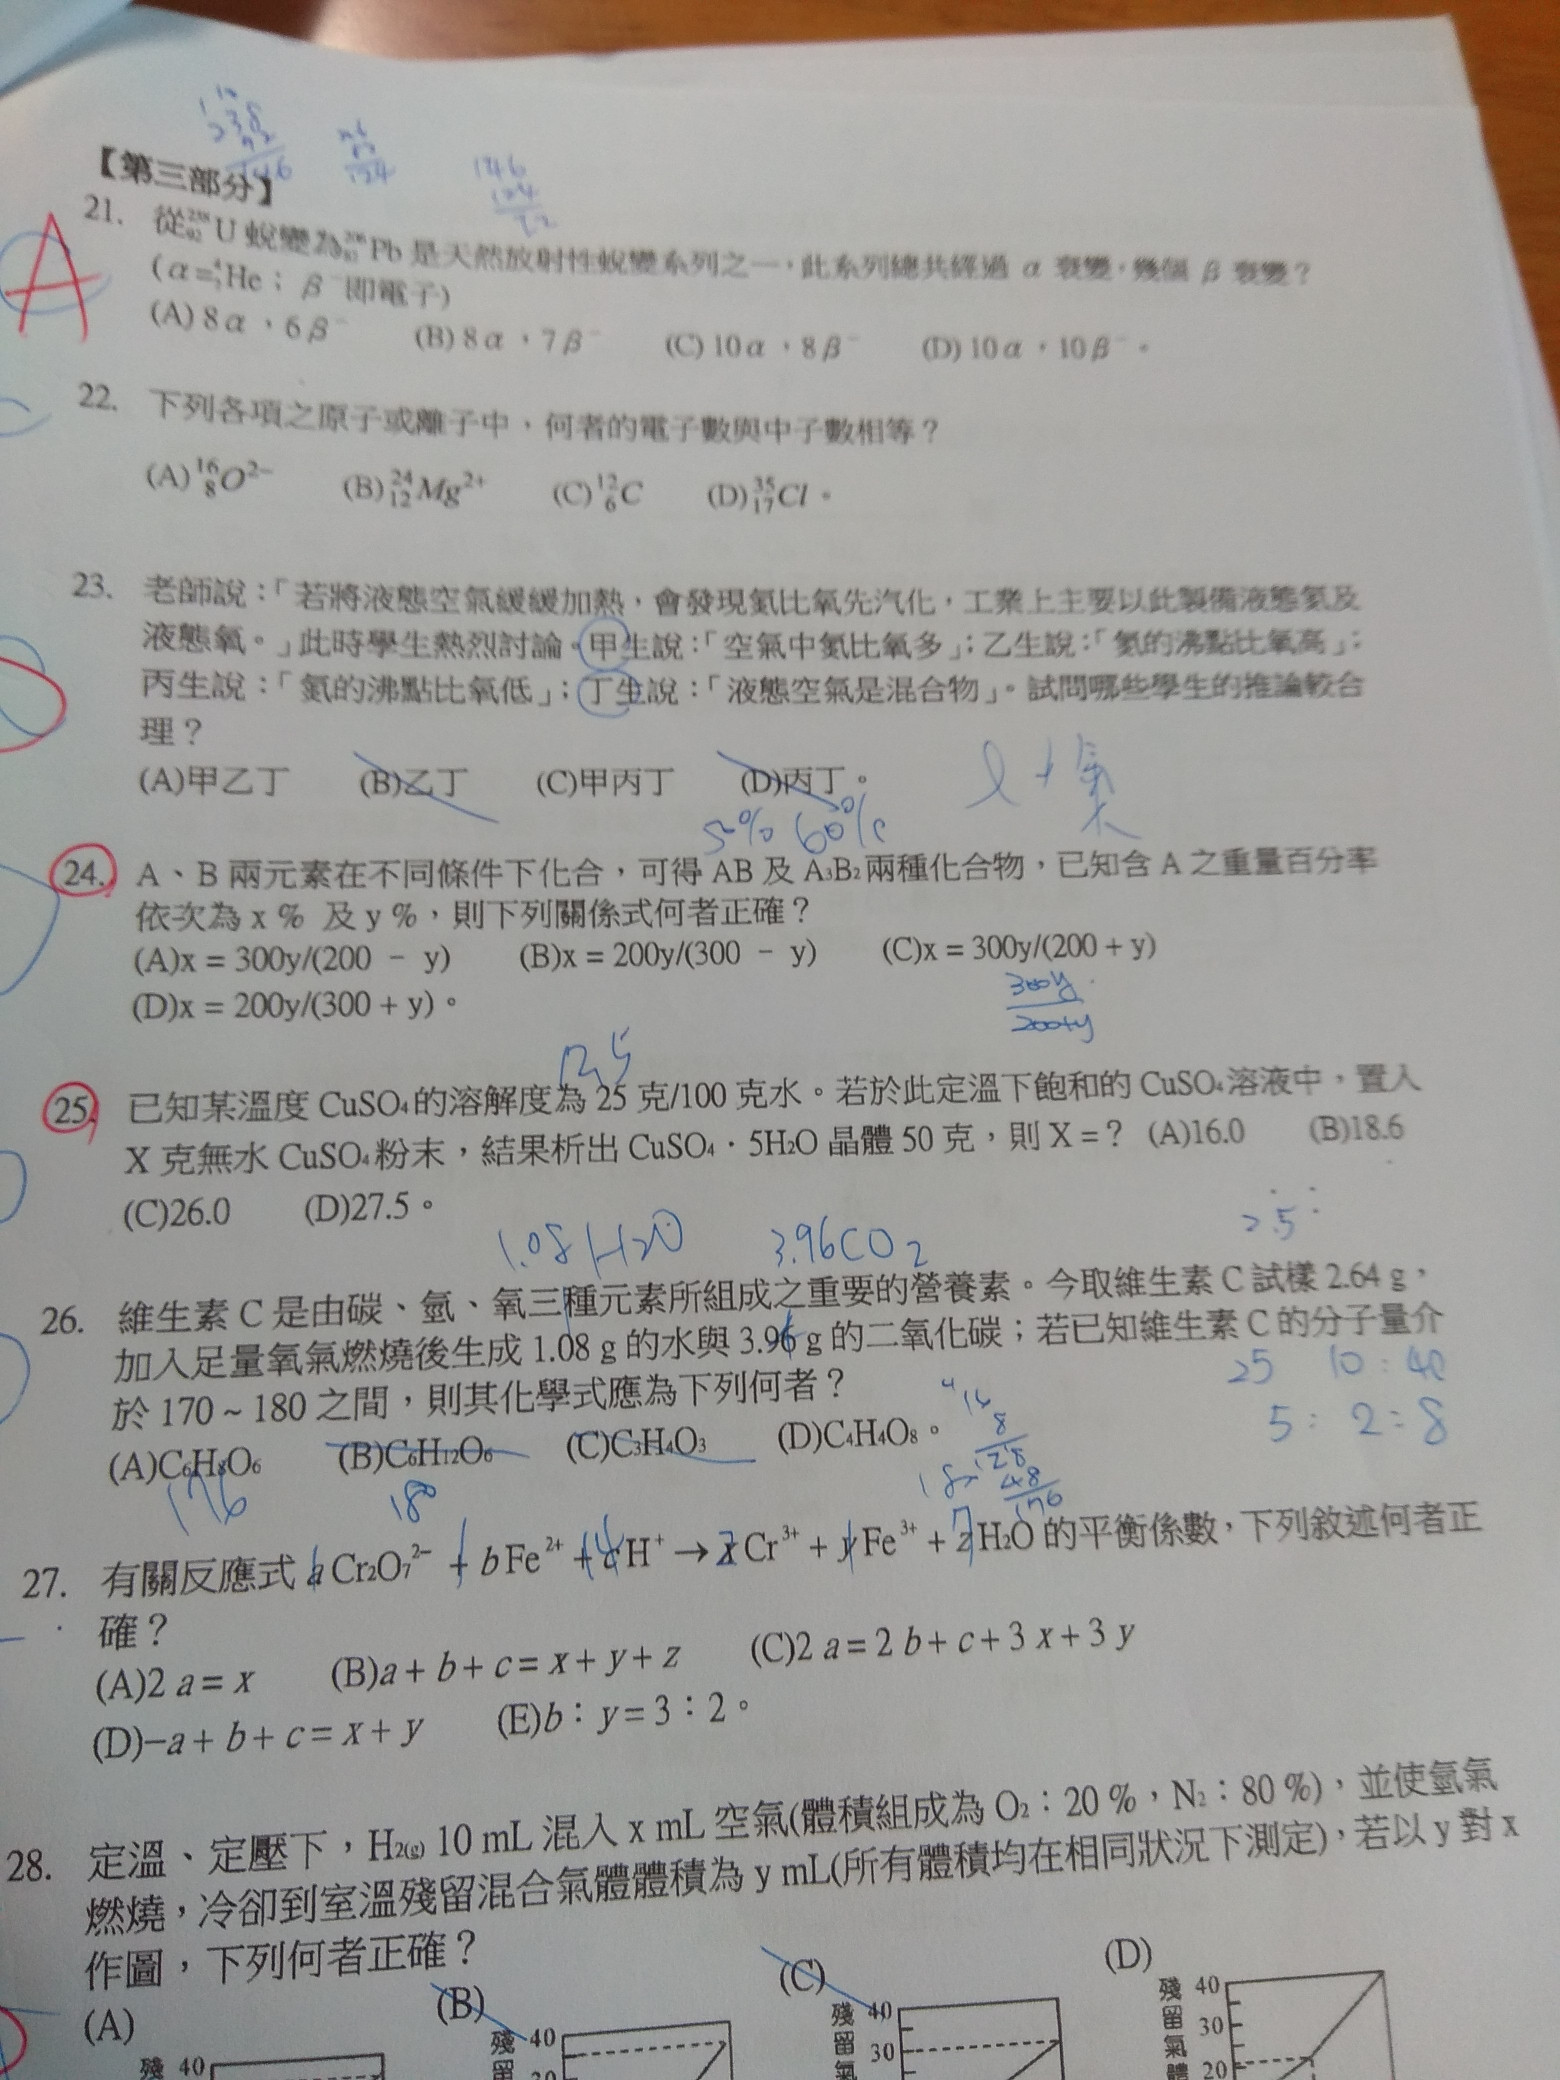 【第三部分】
21. 從²³⁸₉₂U 蛻變為²⁰⁶₈₂Pb 是天然放射性蛻變系列之一，此系列總共經過 α 衰變，幾個 β 衰變？
A
(α=⁴₂He； β⁻即電子)
(A) 8α，6β⁻ (B) 8α，7β⁻ (C) 10α，8β⁻ (D) 10α，10β⁻。
22. 下列各項之原子或離子中，何者的電子數與中子數相等？
(A)¹⁶₈O²⁻ (B)²⁴₁₂Mg²⁺ (C)¹²₆C (D)³⁵₁₇Cl。
23. 老師說：「若將液態空氣緩緩加熱，會發現氮比氧先汽化，工業上主要以此製備液態氮及
液態氧。」此時學生熱烈討論。甲生說：「空氣中氮比氧多」；乙生說：「氮的沸點比氧高」；
丙生說：「氮的沸點比氧低」；丁生說：「液態空氣是混合物」。試問哪些學生的推論較合
理？
(A)甲乙丁 (B)乙丁 (C)甲丙丁 (D)丙丁。
50% 60%
24. A、B 兩元素在不同條件下化合，可得 AB 及 A₃B₂兩種化合物，已知含 A 之重量百分率
依次為 x % 及 y %，則下列關係式何者正確？
(A)x = 300y/(200 − y) (B)x = 200y/(300 − y) (C)x = 300y/(200 + y)
(D)x = 200y/(300 + y)。
300y
200+y
25. 已知某溫度 CuSO₄的溶解度為 25 克/100 克水。若於此定溫下飽和的 CuSO₄溶液中，置入
X 克無水 CuSO₄粉末，結果析出 CuSO₄．5H₂O 晶體 50 克，則 X =？ (A)16.0 (B)18.6
(C)26.0 (D)27.5。
2.5
1.08 H₂O 3.96CO₂
26. 維生素 C 是由碳、氫、氧三種元素所組成之重要的營養素。今取維生素 C 試樣 2.64 g，
加入足量氧氣燃燒後生成 1.08 g 的水與 3.96 g 的二氧化碳；若已知維生素 C 的分子量介
25 10:40
於 170 ~ 180 之間，則其化學式應為下列何者？
5:2:8
(A)C₆H₈O₆ (B)C₆H₁₂O₆ (C)C₃H₄O₃ (D)C₄H₄O₈。
176 180
27. 有關反應式 a Cr₂O₇²⁻ + b Fe²⁺ + c H⁺ → x Cr³⁺ + y Fe³⁺ + z H₂O 的平衡係數，下列敘述何者正
確？
(A)2 a = x (B)a + b + c = x + y + z (C)2 a = 2 b + c + 3 x + 3 y
(D)−a + b + c = x + y (E)b：y = 3：2。
28. 定溫、定壓下，H₂(g) 10 mL 混入 x mL 空氣(體積組成為 O₂：20 %，N₂：80 %)，並使氫氣
燃燒，冷卻到室溫殘留混合氣體體積為 y mL(所有體積均在相同狀況下測定)，若以 y 對 x
作圖，下列何者正確？
(A) (B) (C) (D)
殘 40
殘留 40
殘留氣 40 30
殘留氣體 40 30 20